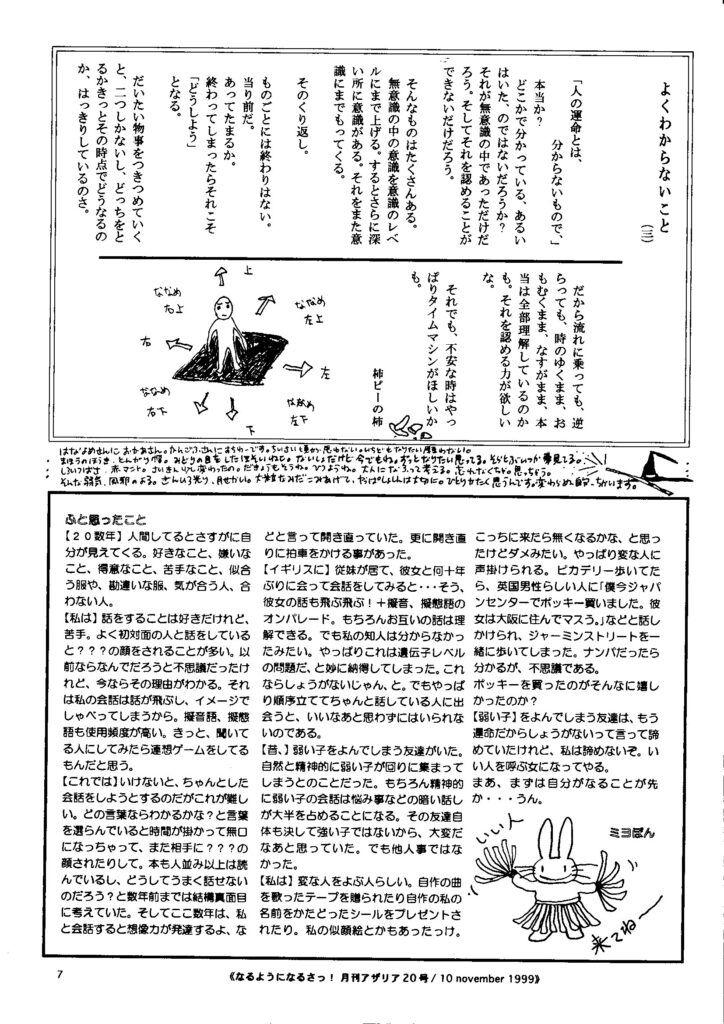 よくわからないこと
(三)
「人の運命とは、
分からないもので、」
本当か?
どこかで分かっている、あるい
はいた、のではないだろうか?
それが無意識の中であっただけだ
ろう。そしてそれを認めることが
できないだけだろう。
そんなものはたくさんある。
無意識の中の意識を意識のレベ
ルにまで上げる。するとさらに深
い所に意識がある。それをまた意
識にまでもってくる。
そのくり返し。
ものごとには終わりはない。
当り前だ。
あってたまるか。
終わってしまったらそれこそ
「どうしよう」
となる。
だいたい物事をつきつめていく
と、二つしかないし、どっちをと
るかきっとその時点でどうなるの
か、はっきりしているのさ。
だから流れに乗っても、逆
らっても、時のゆくまま、お
もむくまま、なすがまま、本
当は全部理解しているのか
も。それを認める力が欲しい
な。
それでも、不安な時はやっ
ぱりタイムマシンがほしいか
も。
柿ピーの柿
上
ななめ
右上
ななめ
左上
右
左
ななめ
右下
ななめ
左下
下
ふと思ったこと
【20数年】人間してるとさすがに自
分が見えてくる。好きなこと、嫌いな
こと、得意なこと、苦手なこと、似合
う服や、勘違いな服、気が合う人、合
わない人。
【私は】話をすることは好きだけれど、
苦手。よく初対面の人と話をしている
と???の顔をされることが多い。以
前ならなんでだろうと不思議だったけ
れど、今ならその理由がわかる。それ
は私の会話は話が飛ぶし、イメージで
しゃべってしまうから。擬音語、擬態
語も使用頻度が高い。きっと、聞いて
る人にしてみたら連想ゲームをしてる
もんだと思う。
【これでは】いけないと、ちゃんとした
会話をしようとするのだがこれが難し
い。どの言葉ならわかるかな?と言葉
を選らんでいると時間が掛かって無口
になっちゃって、また相手に???の
顔されたりして。本も人並み以上は読
んでいるし、どうしてうまく話せない
のだろう?と数年前までは結構真面目
に考えていた。そしてここ数年は、私
と会話すると想像力が発達するよ、な
どと言って開き直っていた。更に開き直
りに拍車をかける事があった。
【イギリスに】従妹が居て、彼女と何十年
ぶりに会って会話をしてみると・・・そう、
彼女の話も飛ぶ飛ぶ!+擬音、擬態語の
オンパレード。もちろんお互いの話は理
解できる。でも私の知人は分からなかっ
たみたい。やっぱりこれは遺伝子レベル
の問題だ、と妙に納得してしまった。これ
ならしょうがないじゃん、と。でもやっぱ
り順序立ててちゃんと話している人に出
会うと、いいなあと思わずにはいられな
いのである。
【昔、】弱い子をよんでしまう友達がいた。
自然と精神的に弱い子が回りに集まって
しまうとのことだった。もちろん精神的
に弱い子の会話は悩み事などの暗い話し
が大半を占めることになる。その友達自
体も決して強い子ではないから、大変だ
なあと思っていた。でも他人事ではな
かった。
【私は】変な人をよぶ人らしい。自作の曲
を歌ったテープを贈られたり自作の私の
名前をかたどったシールをプレゼントさ
れたり。私の似顔絵とかもあったっけ。
こっちに来たら無くなるかな、と思っ
たけどダメみたい。やっぱり変な人に
声掛けられる。ピカデリー歩いてた
ら、英国男性らしい人に「僕今ジャパ
ンセンターでポッキー買いました。彼
女は大阪に住んでマスう。」などと話し
かけられ、ジャーミンストリートを一
緒に歩いてしまった。ナンパだったら
分かるが、不思議である。
ポッキーを買ったのがそんなに嬉し
かったのか?
【弱い子】をよんでしまう友達は、もう
運命だからしょうがないって言って諦
めていたけれど、私は諦めないぞ。い
い人を呼ぶ女になってやる。
まあ、まずは自分がなることが先
か・・・うん。
ミヨぽん
いい人
来てね〜
7
《なるようになるさっ! 月刊アザリア20号 / 10 november 1999》